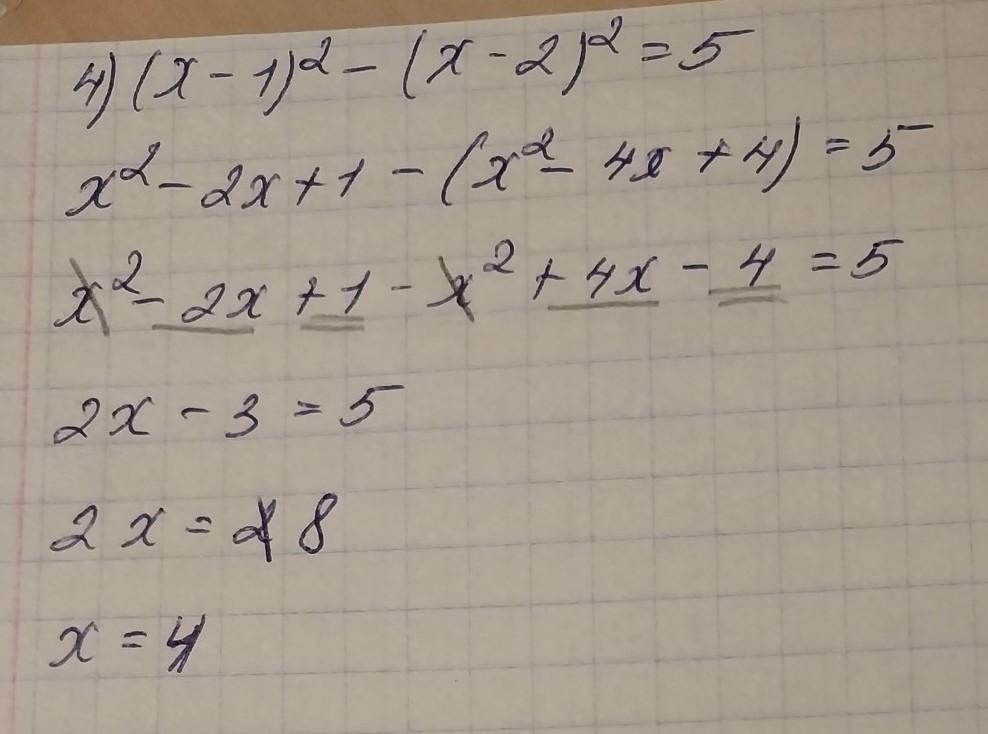 4) (x - 1)² - (x - 2)² = 5
x² - 2x + 1 - (x² - 4x + 4) = 5
x² - 2x + 1 - x² + 4x - 4 = 5
2x - 3 = 5
2x = 8
x = 4